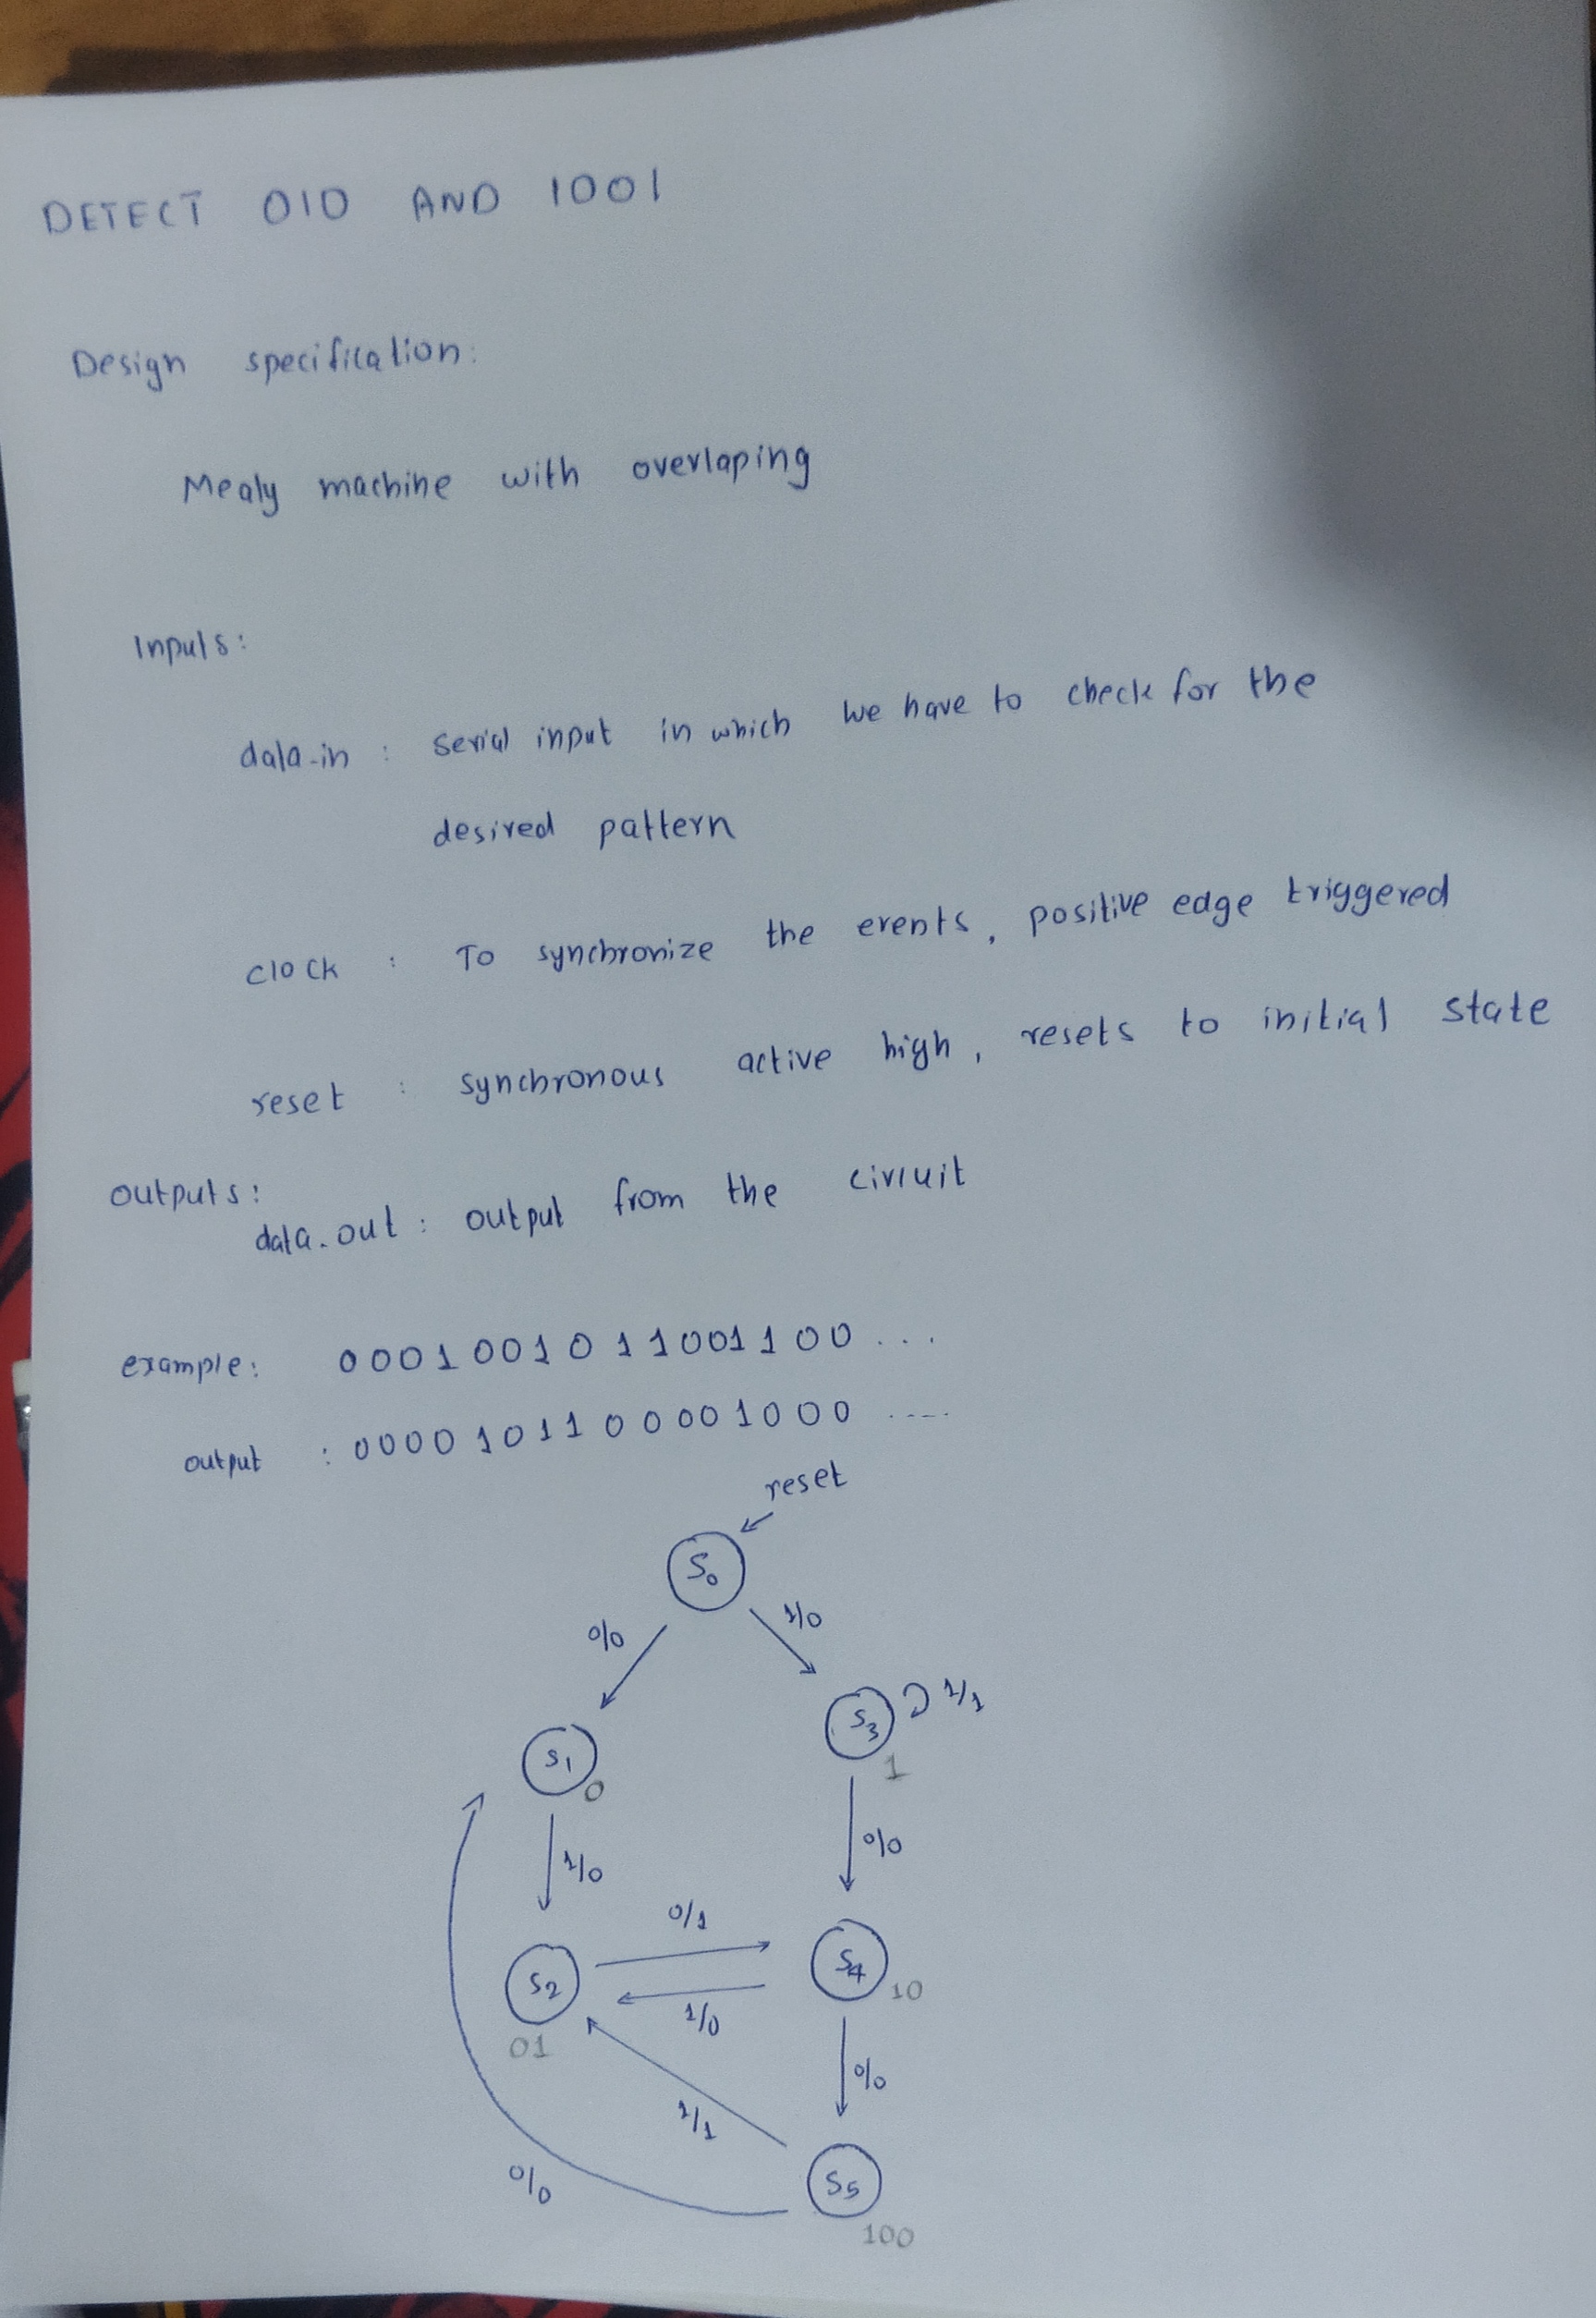 DETECT 010 AND 1001
Design specification:
Mealy machine with overlaping
Inputs:
data-in : serial input in which we have to check for the
desired pattern
clock : To synchronize the events, positive edge triggered
reset : synchronous active high, resets to initial state
outputs:
data-out : output from the circuit
example: 0001001011001100 ...
output : 0000101100001000 ....
reset
S0
0/0 1/0
S3 1/1
1
S1
0
0/0
1/0
0/1
S4
10
S2
01
1/0
0/0
1/1
0/0
S5
100